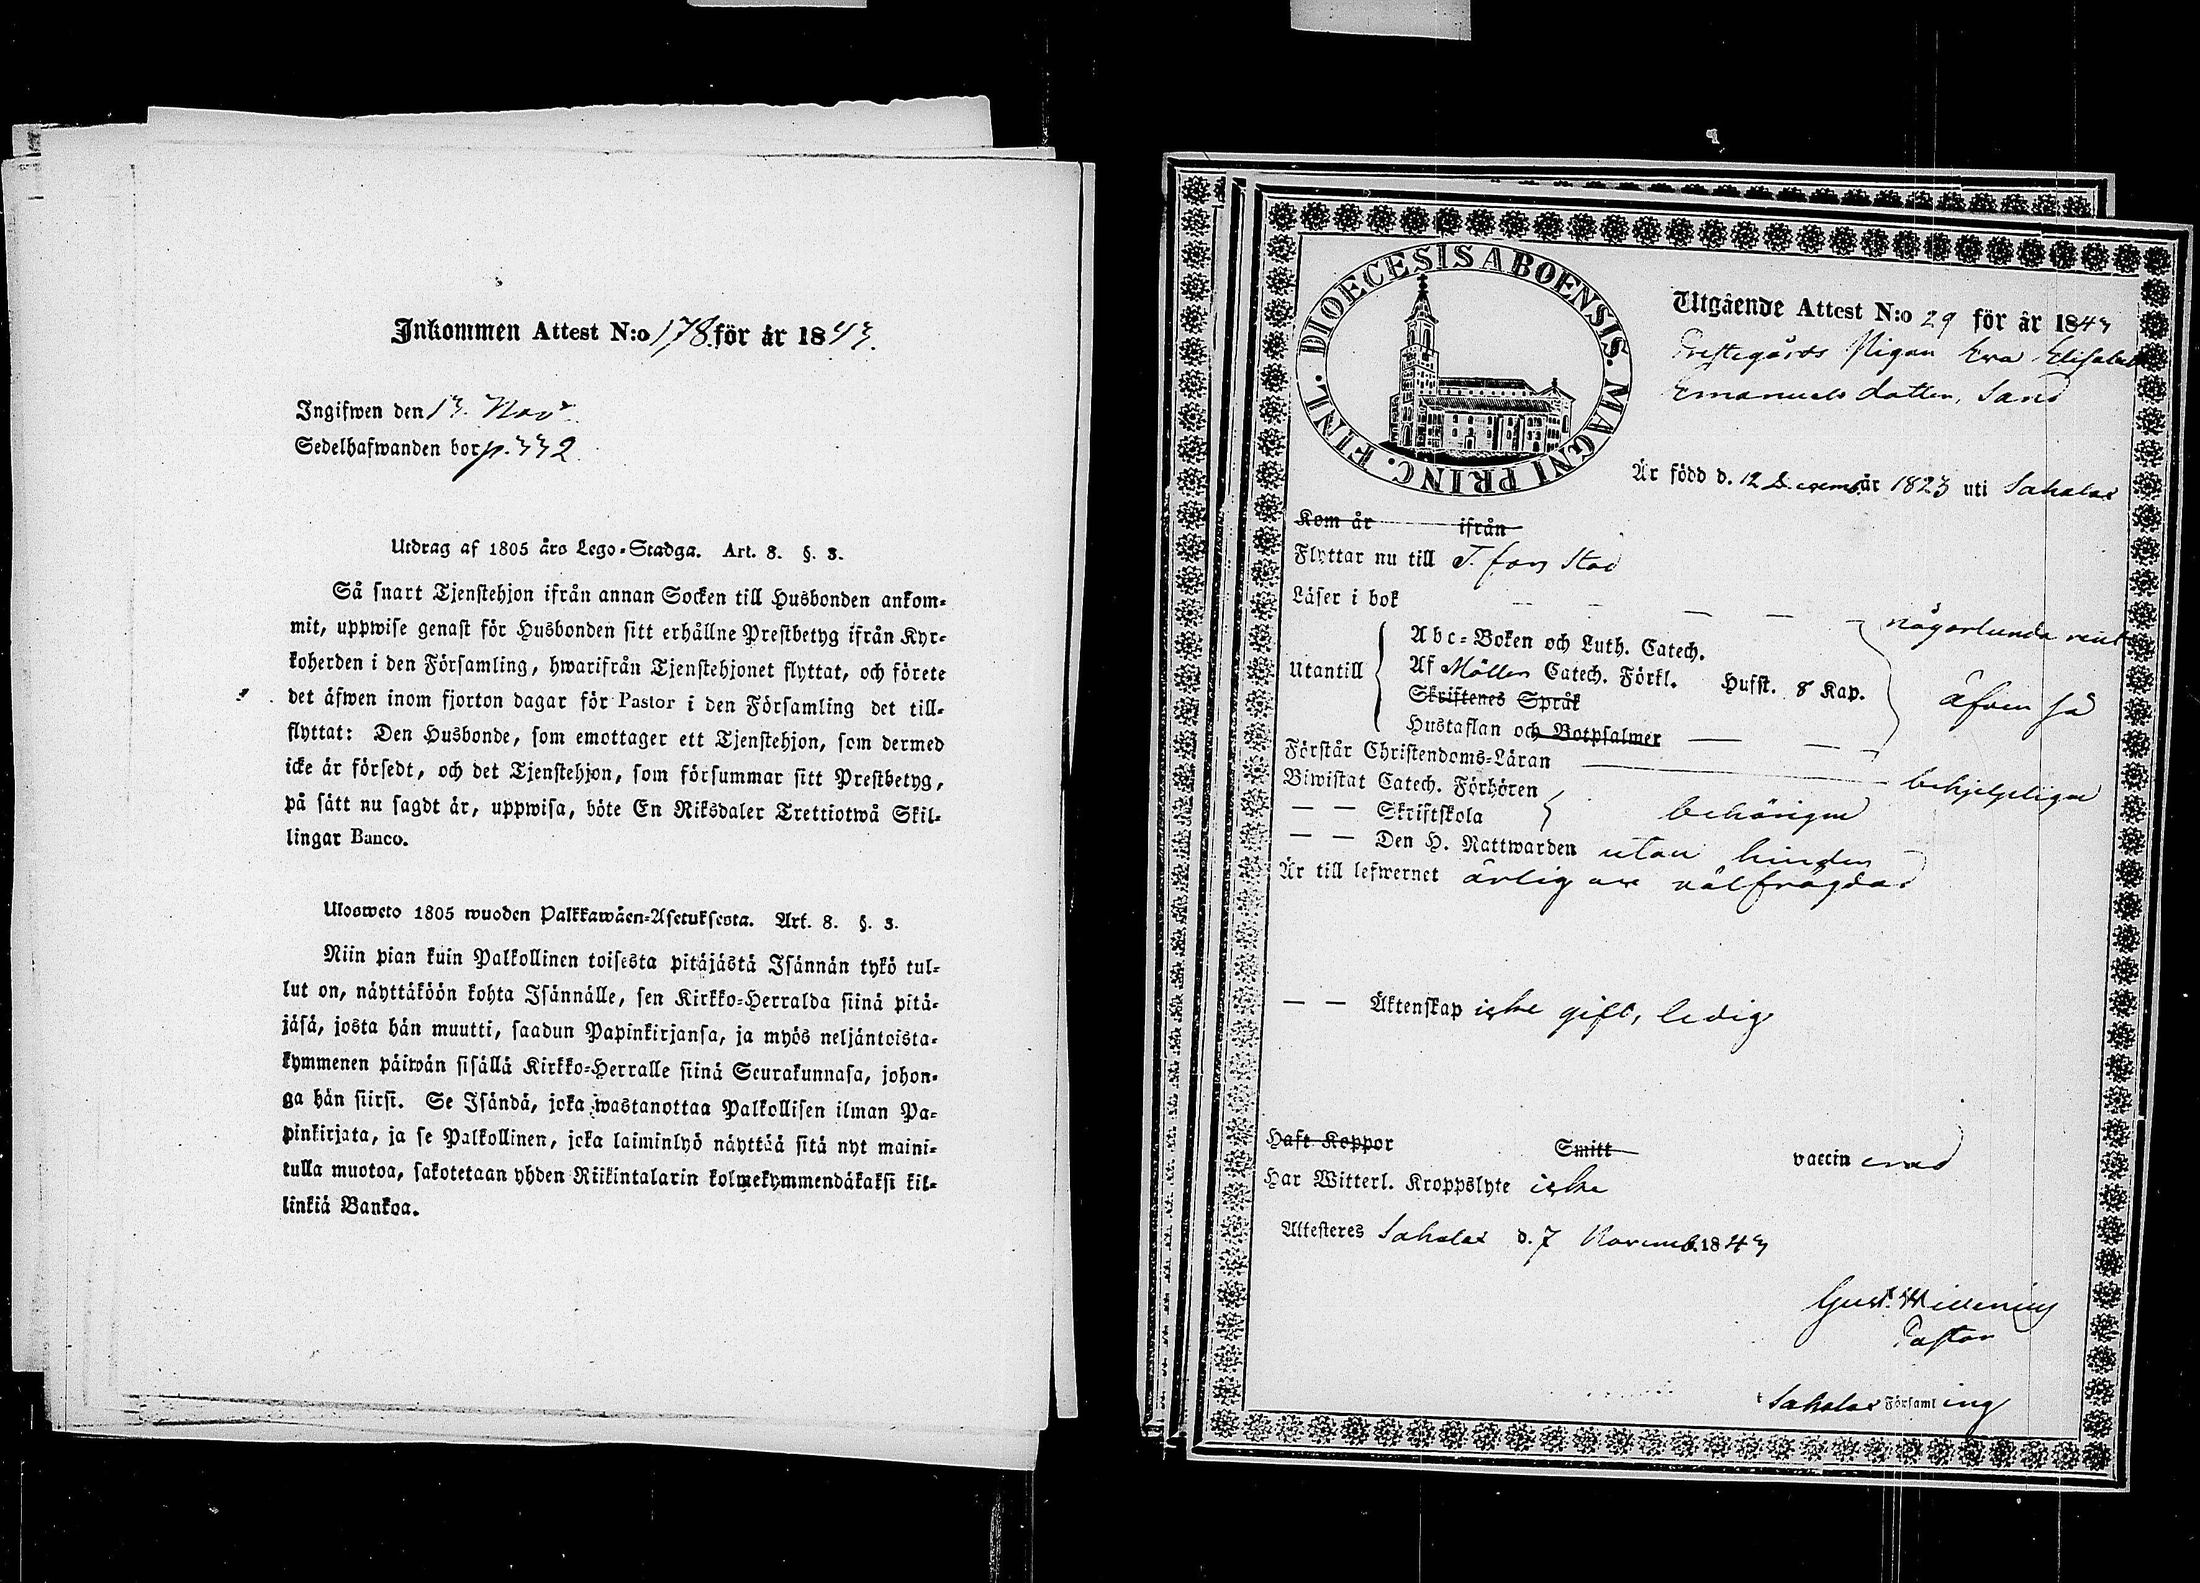 Inkommen Attest N:o 178 för år 1843.
Ingifwen den 13. Nov.
Sedelhafwanden bor p. 332.
Utdrag af 1805 års Lego-Stadga. Art. 8. §. 3.
Så snart Tjenstehjon ifrån annan Socken till Husbonden ankom-
mit, uppwise genast för Husbonden sitt erhållne Prestbetyg ifrån Kyr-
koherden i den Församling, hwarifrån Tjenstehjonet flyttat, och förete
det äfwen inom fjorton dagar för Pastor i den Församling det till-
flyttat: Den Husbonde, som emottager ett Tjenstehjon, som dermed
icke är försedt, och det Tjenstehjon, som försummar sitt Prestbetyg,
på sätt nu sagdt är, uppwisa, böte En Riksdaler Trettiotwå Skil-
lingar Banco.
Ulosweto 1805 wuoden Palkkawäen-Asetuksesta. Art. 8. §. 3.
Niin pian kuin Palkollinen toisesta pitäjästä Isännän tykö tul-
lut on, näyttäköön kohta Isännälle, sen Kirkko-Herralda siinä pitä-
jäsä, josta hän muutti, saadun Papinkirjansa, ja myös neljäntoista-
kymmenen päiwän sisällä Kirkko-Herralle siinä Seurakunnasa, johon-
ga hän siirsi. Se Isändä, joka wastanottaa Palkollisen ilman Pa-
pinkirjata, ja se Palkollinen, joka laiminlyö näyttää sitä nyt maini-
tulla muotoa, sakotetaan yhden Riikintalarin kolmekymmendäkaksi kil-
linkiä Bankoa.
DIOECESIS ABOENSIS. MAGNI PRINC. FINL.
Utgående Attest N:o 29 för år 1843
Prestegårds Pigan Eva Elisabet
Emanuels dotter, Sand
Är född d. 12 Decemb. år 1823 uti Sahalax
Kom år ifrån
Flyttar nu till T. fors Stad
Läser i bok någorlunda rent
Utantill
Abc-Boken och Luth. Catech.
Af Möllers Catech. Förkl. Husst. 8 Kap. äfven så
Skriftenes Språk
Hustaflan och Botpsalmer
Förstår Christendoms-Läran behjelpligen
Biwistat Catech. Förhören
— — Skriftskola behörigen
— — Den H. Nattwarden utan hinder
Är till lefwernet ärlig och välfrägdad
— — Äktenskap icke gift, ledig
Haft Koppor Smitt vaccinerad
Har Witterl. Kroppslyte icke
Attesteres Sahalax d. 7 Novemb. 1843
Gust. Millenius
Pastor
Sahalax Församling